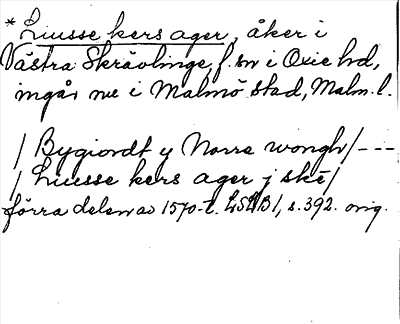 * Liusse kers ager, åker i
Västra Skrävlinge f. sn i Oxie hd,
ingår nu i Malmö stad, Malm. l.
/ Bygiordt y Norre wongh / ---
/ Liusse kers ager j skē /
förra delen av 1570-t. LSLB 1, s. 392. orig.